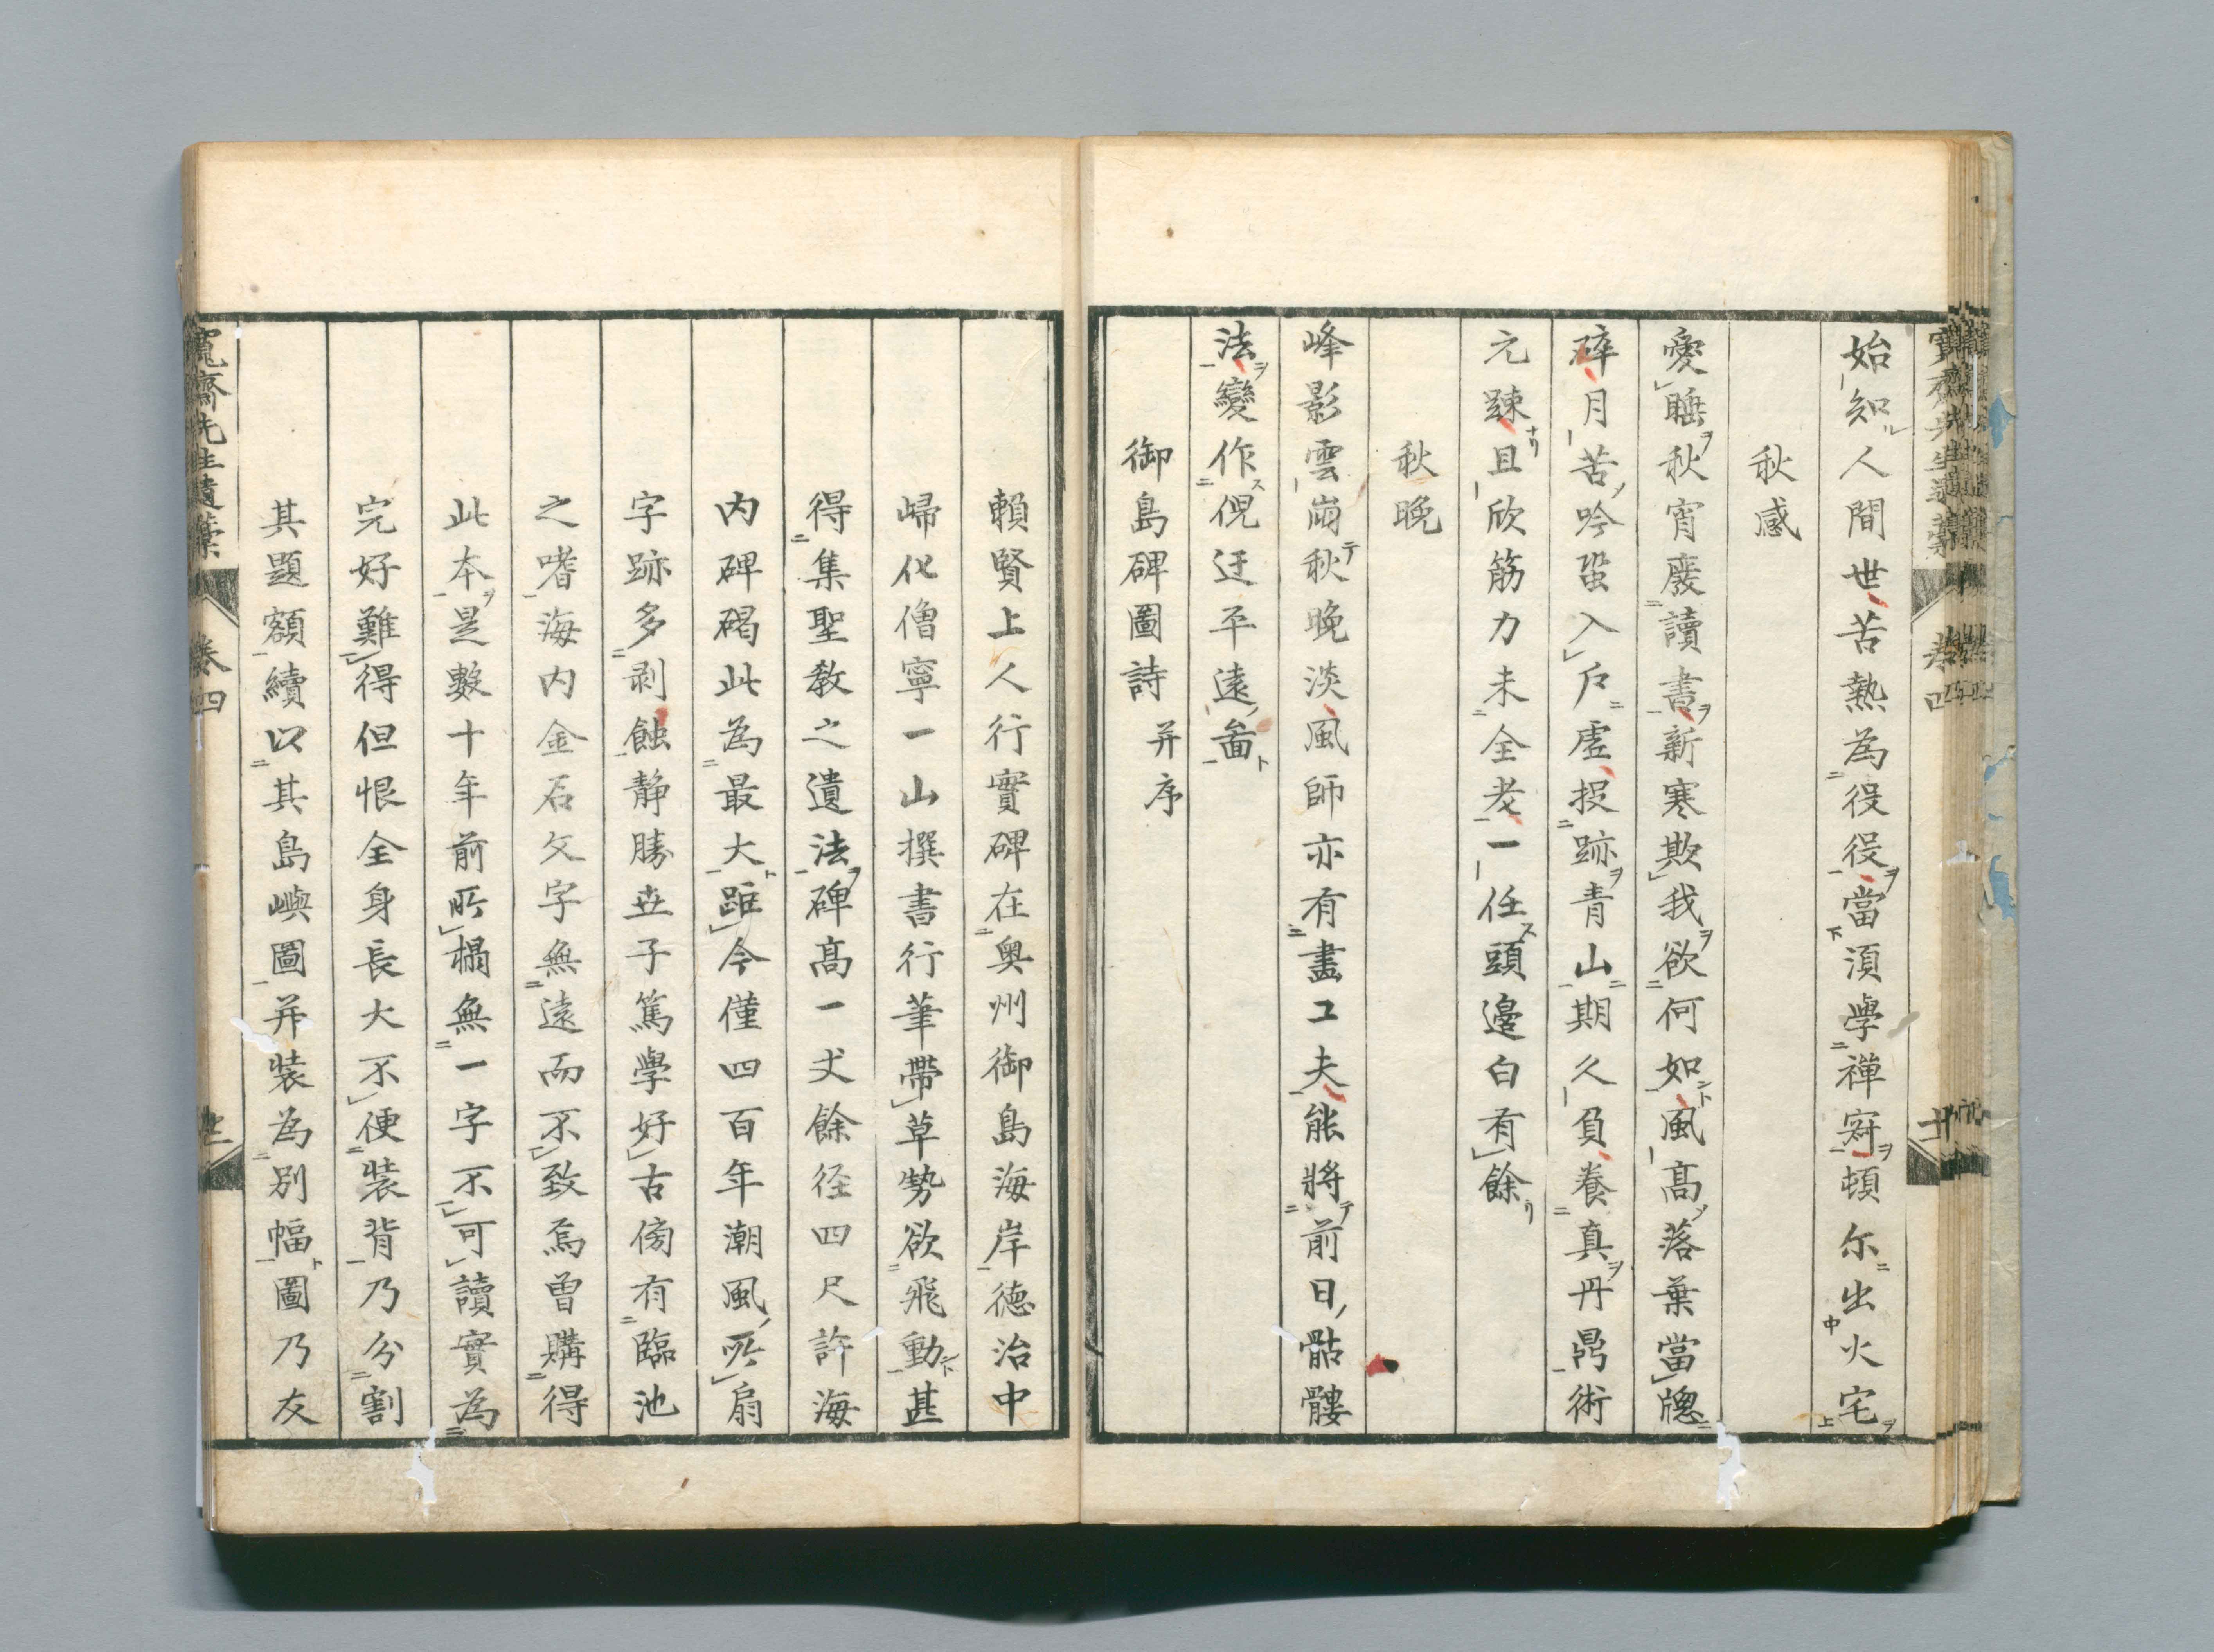 始知人間世苦熱為役役當湏學禪窮頓尓出火宅
秋感
愛睡秋宵廢讀書新寒欺我欲何如風髙落葉當牕
碎月苦吟蛩入戶虛投跡青山期久負養真丹鼎術
元踈且欣筋力未全老一任頭邊白有餘
秋晚
峰影雲崩秋晚淡風師亦有畫工夫能將前日骷髏
法變作倪迂平遠啚
御島碑圖詩 并序
賴賢上人行實碑在奥州御島海岸德治中
歸化僧寧一山撰書行筆帶草勢欲飛動甚
得集聖教之遺法碑髙一丈餘径四尺許海
内碑碣此為最大距今僅四百年潮風所扇
字跡多剥蝕静勝世子篤學好古傍有臨池
之嗜海内金石文字無遠而不致焉曽購得
此本是數十年前所搨無一字不可讀實為
完好難得但恨全身長大不便装背乃分割
其題額續以其島嶼圖并装為別幅圖乃友
寛齋先生遺藁 卷四